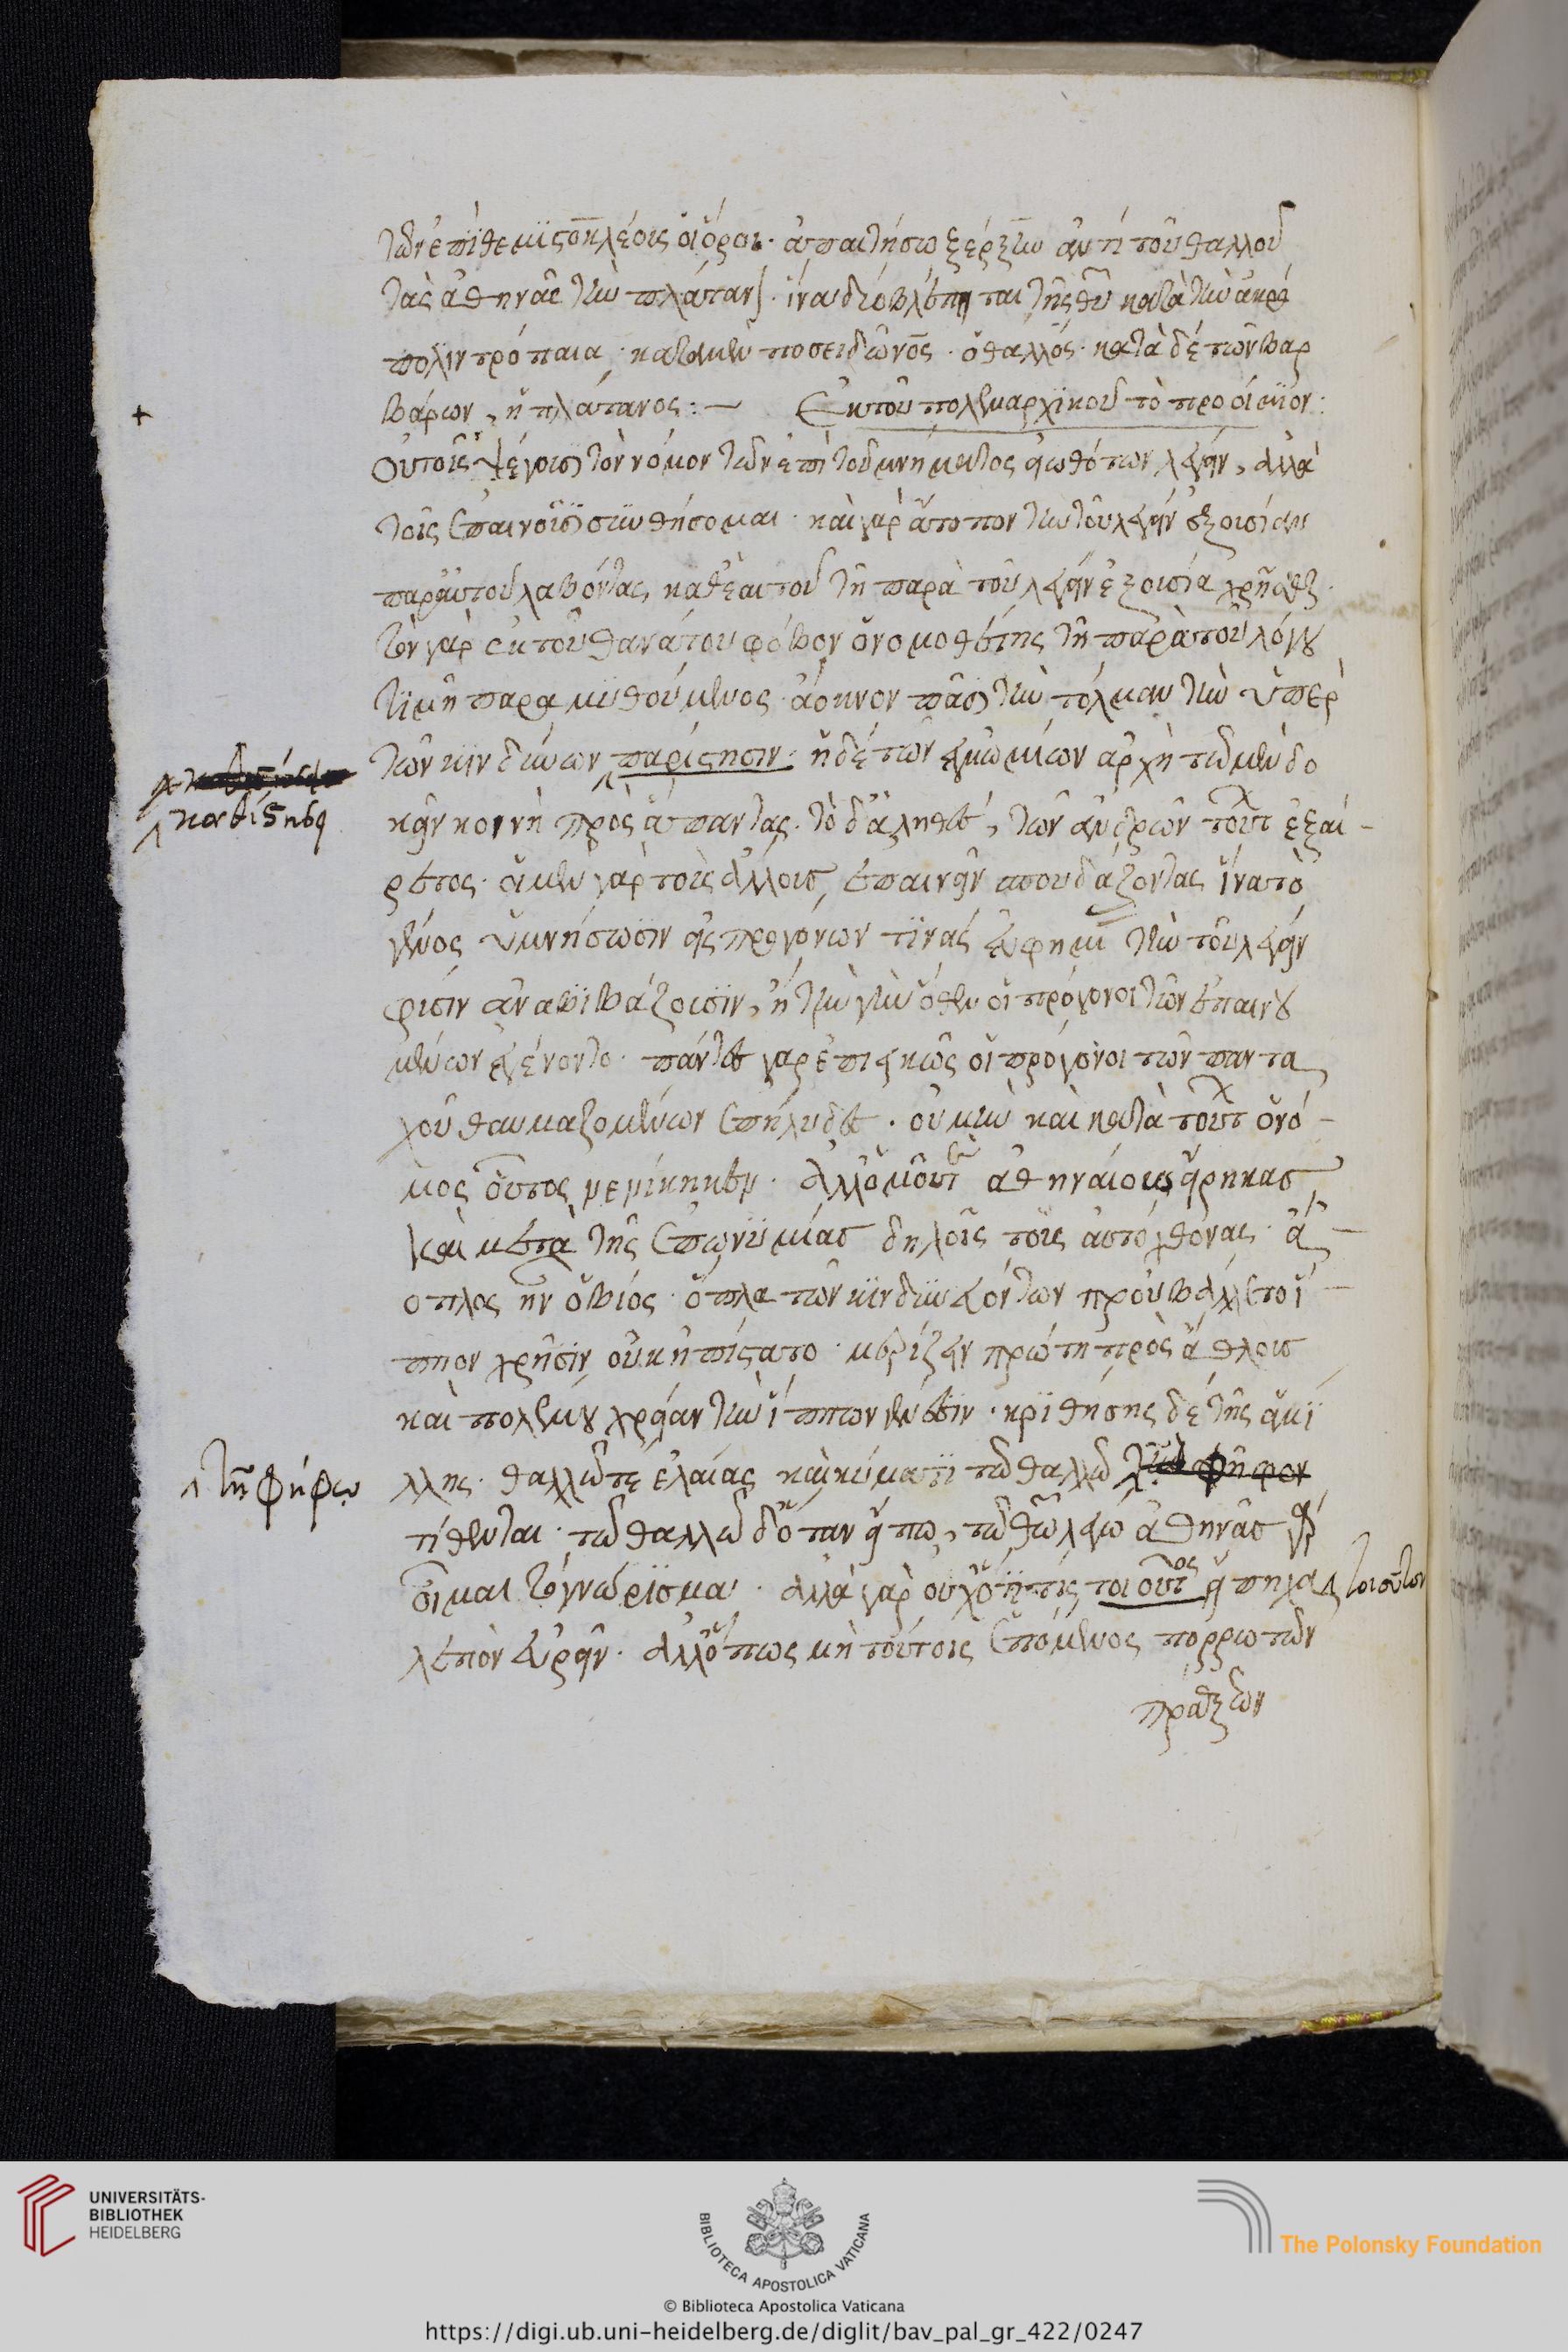 τῶν ἐπὶ θεμιστοκλέους οἱ ὅροι· ἀπαιτήσω ξέρξην ἀντὶ τοῦ θαλλοῦ
τὰς ἀθηνᾶς τὴν πλάτανον· ἵνα δύο βλέπηται τῆς θυ κατὰ τὴν ἀκρό
πολιν τρόπαια· κατὰ μὲν ποσειδῶνος· ὁ θαλλός· κατὰ δὲ τῶν βαρ
βάρων, ἡ πλάτανος:— Ἐκ τοῦ πολεμαρχικοῦ τὸ προοίμιον:
Οὐ τοῖς ψέγουσι τὸν νόμον τῶν ἐπὶ τοῦ μνήματος εἰωθότων λέγειν, ἀλλὰ
τοῖς ἐπαινοῦσι συνθήσομαι· καὶ γὰρ ἄτοπον τὴν τοῦ λέγειν ἐξουσίαν
παρ' αὐτοῦ λαβόντας, καθ' ἑαυτοῦ τῇ παρὰ τοῦ λέγειν ἐξουσία χρῆσθαι·
τὸν γὰρ ἐκ τοῦ θανάτου φόβον ὁ νομοθέτης τῇ παρὰ τοῦ λόγου
τιμῇ παραμυθούμενος· ἄοκνον πᾶσι τὴν τόλμαν τὴν ὑπὲρ
τῶν κινδύνων παρίστησιν· ἡ δὲ τῶν ἐγκωμίων ἀρχὴ τῷ μὲν δο
καθίστησι
κεῖν κοινὴ πρὸς ἅπαντας· τὸ δ' ἀληθὲς, τῶν ἀνδρῶν τούτων ἐξαί-
ρετος· οἱ μὲν γὰρ τοὺς ἄλλους, ἐπαινεῖν σπουδάζοντας ἵνα τὸ
γένος ὑμνήσωσιν εἰς προγόνων τινὰς εὐφημ τὴν τοῦ λέγειν
φύσιν ἀναβιβάζουσιν, ἢ τὴν γῆν ὅθεν οἱ πρόγονοι τῶν ἐπαινου
μένων ἐγένοντο· πάντες γὰρ ἐπιεικῶς οἱ πρόγονοι τῶν πανταχοῦ
θαυμαζομένων ἐπήλυδες· οὐ μὴν καὶ κατὰ τούτων ὁ νό-
μος οὗτος νενίκηκεν· ἀλλ' ὁμοῦ τε ἀθηναίους εἴρηκας,
καὶ μετὰ τῆς ἐπωνυμίας δηλοῖς τοὺς αὐτόχθονας· ἄ-
οπλος ἦν ὁ βίος· ὅπλα τῶν κινδυνευόντων προὐβάλλετο ἵ-
ππον χρῆσιν οὐκ ἠπίστατο· μερίζειν πρώτη πρὸς ἄθλους
καὶ πολέμου χρείαν τὴν ἵππων γένεσιν· κριθήσης δὲ τῆς ἁμί
λλης· θαλλῷ τε ἐλαίας καὶ κύματι τῷ θαλλῷ τὴν ψῆφον
τῇ ψήφῳ
τίθενται· τῷ θαλλῷ δ' ὅταν εἴπω, τῷ θῶ λέγω ἀθηνᾶς γὰρ
οἶμαι τὸ γνώρισμα· ἀλλὰ γὰρ οὐχ ὅτι τις τοιοῦτος εἴπῃ χα
τοιοῦτον
λεπὸν εὑρεῖν· ἀλλ' ὅπως μὴ τούτοις ἑπόμενος πόρρω τῶν
πράξεων
UNIVERSITÄTS-
BIBLIOTHEK
HEIDELBERG
BIBLIOTECA APOSTOLICA VATICANA
The Polonsky Foundation
© Biblioteca Apostolica Vaticana
https://digi.ub.uni-heidelberg.de/diglit/bav_pal_gr_422/0247